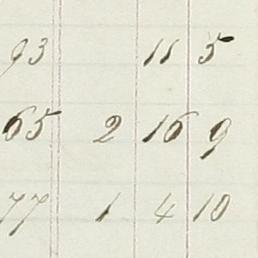 93 11 5
65 2 16 9
77 1 4 10